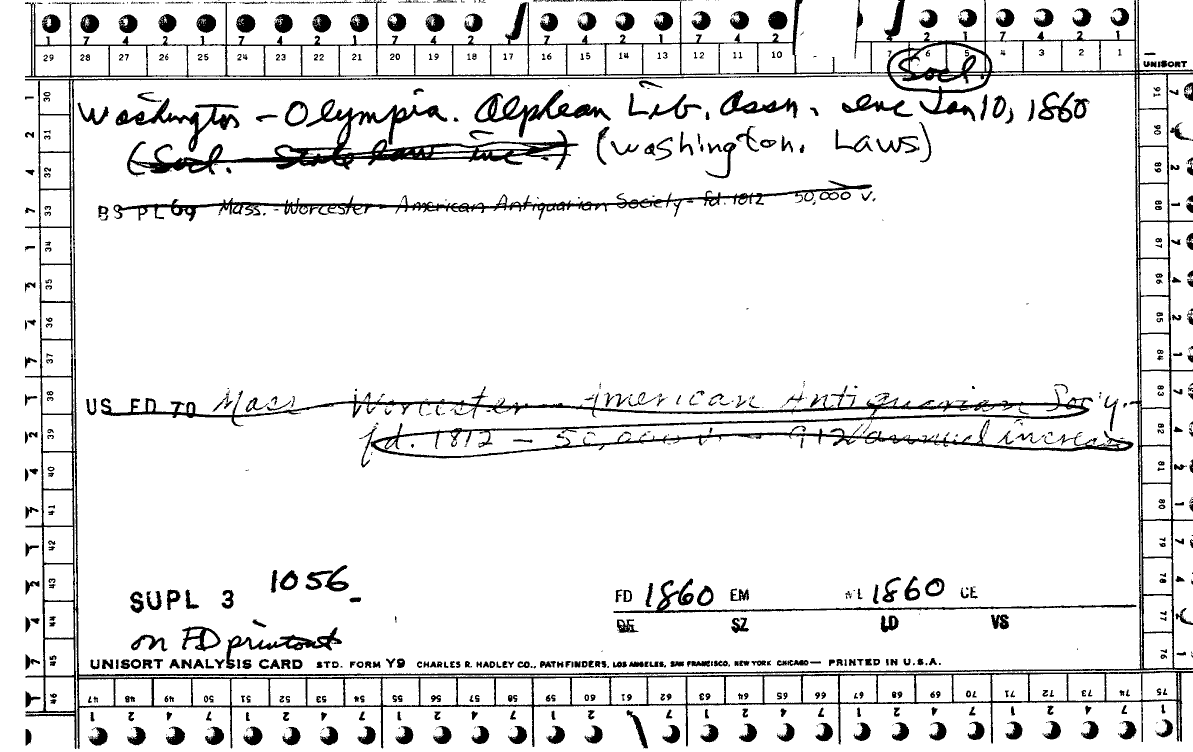 1 7 4 2 1 7 4 2 1 7 4 2 7 4 2 1 7 4 2 2 1 7 4 2 1
29 28 27 26 25 24 23 22 21 20 19 18 17 16 15 14 13 12 11 10 7 6 5 4 3 2 1
UNISORT
Socl.
Washington - Olympia. Alphean Lib. Assn. inc Jan 10, 1860
(Socl. - State law inc.) (Washington. Laws)
BS PL 69 Mass. - Worcester - American Antiquarian Society - fd. 1812 50,000 v.
US ED 70 Mass - Worcester - American Antiquarian Soc'y. -
fd. 1812 - 50,000 v. - 912 annual increase
SUPL 3 1056
on FD printout
FD 1860 EM 1860 CE
DE SZ LD VS
UNISORT ANALYSIS CARD STD. FORM Y9 CHARLES R. HADLEY CO., PATHFINDERS, LOS ANGELES, SAN FRANCISCO, NEW YORK CHICAGO — PRINTED IN U.S.A.
30 31 32 33 34 35 36 37 38 39 40 41 42 43 44 45 46
47 48 49 50 51 52 53 54 55 56 57 58 59 60 61 62 63 64 65 66 67 68 69 70 71 72 73 74 75
76 77 78 79 80 81 82 83 84 85 86 87 88 89 90 91